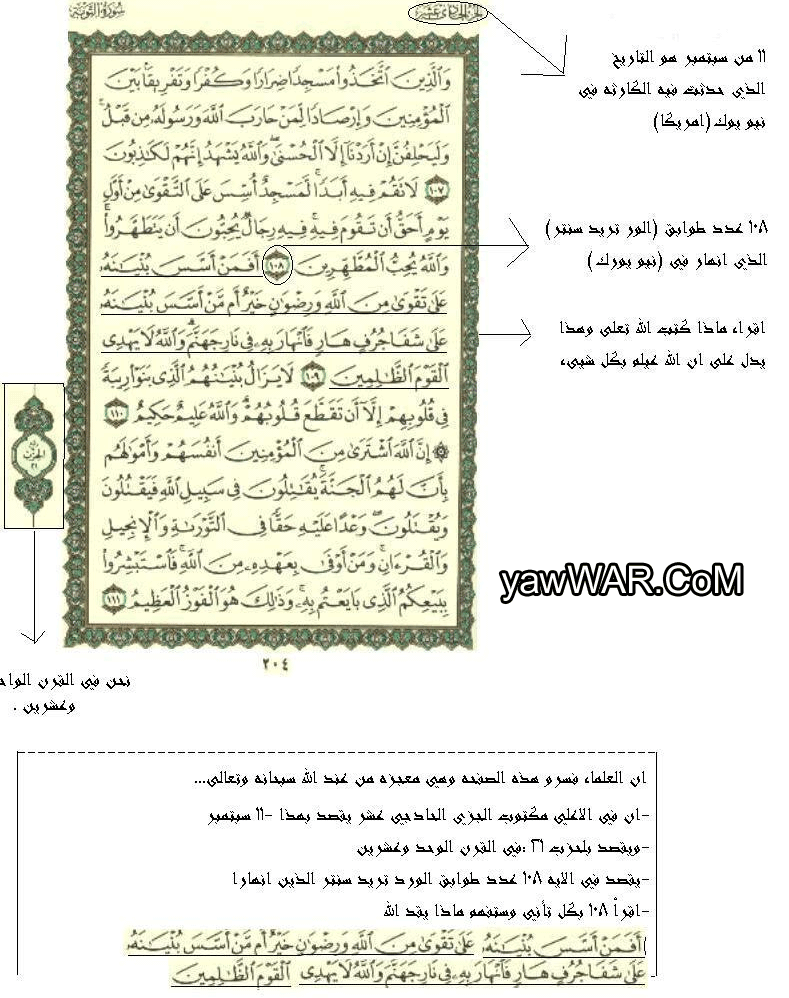 سورة التوبة
الجزء الحادي عشر
وَالَّذِينَ اتَّخَذُوا مَسْجِدًا ضِرَارًا وَكُفْرًا وَتَفْرِيقًا بَيْنَ
الْمُؤْمِنِينَ وَإِرْصَادًا لِّمَنْ حَارَبَ اللَّهَ وَرَسُولَهُ مِن قَبْلُ
وَلَيَحْلِفُنَّ إِنْ أَرَدْنَا إِلَّا الْحُسْنَىٰ وَاللَّهُ يَشْهَدُ إِنَّهُمْ لَكَاذِبُونَ
١٠٧ لَا تَقُمْ فِيهِ أَبَدًا لَّمَسْجِدٌ أُسِّسَ عَلَى التَّقْوَىٰ مِنْ أَوَّلِ
يَوْمٍ أَحَقُّ أَن تَقُومَ فِيهِ فِيهِ رِجَالٌ يُحِبُّونَ أَن يَتَطَهَّرُوا
وَاللَّهُ يُحِبُّ الْمُطَّهِّرِينَ ١٠٨ أَفَمَنْ أَسَّسَ بُنْيَانَهُ
عَلَىٰ تَقْوَىٰ مِنَ اللَّهِ وَرِضْوَانٍ خَيْرٌ أَم مَّنْ أَسَّسَ بُنْيَانَهُ
عَلَىٰ شَفَا جُرُفٍ هَارٍ فَانْهَارَ بِهِ فِي نَارِ جَهَنَّمَ وَاللَّهُ لَا يَهْدِي
الْقَوْمَ الظَّالِمِينَ ١٠٩ لَا يَزَالُ بُنْيَانُهُمُ الَّذِي بَنَوْا رِيبَةً
فِي قُلُوبِهِمْ إِلَّا أَن تَقَطَّعَ قُلُوبُهُمْ وَاللَّهُ عَلِيمٌ حَكِيمٌ ١١٠
۞ إِنَّ اللَّهَ اشْتَرَىٰ مِنَ الْمُؤْمِنِينَ أَنفُسَهُمْ وَأَمْوَالَهُم
بِأَنَّ لَهُمُ الْجَنَّةَ يُقَاتِلُونَ فِي سَبِيلِ اللَّهِ فَيَقْتُلُونَ
وَيُقْتَلُونَ وَعْدًا عَلَيْهِ حَقًّا فِي التَّوْرَاةِ وَالْإِنجِيلِ
وَالْقُرْآنِ وَمَنْ أَوْفَىٰ بِعَهْدِهِ مِنَ اللَّهِ فَاسْتَبْشِرُوا
بِبَيْعِكُمُ الَّذِي بَايَعْتُم بِهِ وَذَٰلِكَ هُوَ الْفَوْزُ الْعَظِيمُ ١١١
٢٠٤
الحزب
٢١
١١ من سبتمبر هو التاريخ
الذي حدثت فيه الكارثه في
نيو يوك (امريكا)
١٠٨ عدد طوابق (الور تريد سنتر)
الذي انهار في (نيو يورك)
اقراء ماذا كتب الله تعلى وهذا
يدل على ان الله عيلم بكل شيىء
yawWAR.CoM
نحن في القرن الواح
وعشرين .
ان العلماء فسرو هذه الصفحه وهي معجزه من عند الله سبحانه وتعالى...
-ان في الاعلي مكتوب الجزي الحادجي عشر يقصد بهذا -١١ سبتمبر
-ويقصد بلحزب ٢١ :في القرن الوحد وعشرين
-يقصد في الايه ١٠٨ عدد طوابق الورد تريد سنتر الذين انهارا
-اقرأ ١٠٨ بكل تأني وستفهم ماذا يقد الله
أَفَمَنْ أَسَّسَ بُنْيَانَهُ عَلَىٰ تَقْوَىٰ مِنَ اللَّهِ وَرِضْوَانٍ خَيْرٌ أَم مَّنْ أَسَّسَ بُنْيَانَهُ
عَلَىٰ شَفَا جُرُفٍ هَارٍ فَانْهَارَ بِهِ فِي نَارِ جَهَنَّمَ وَاللَّهُ لَا يَهْدِي الْقَوْمَ الظَّالِمِينَ